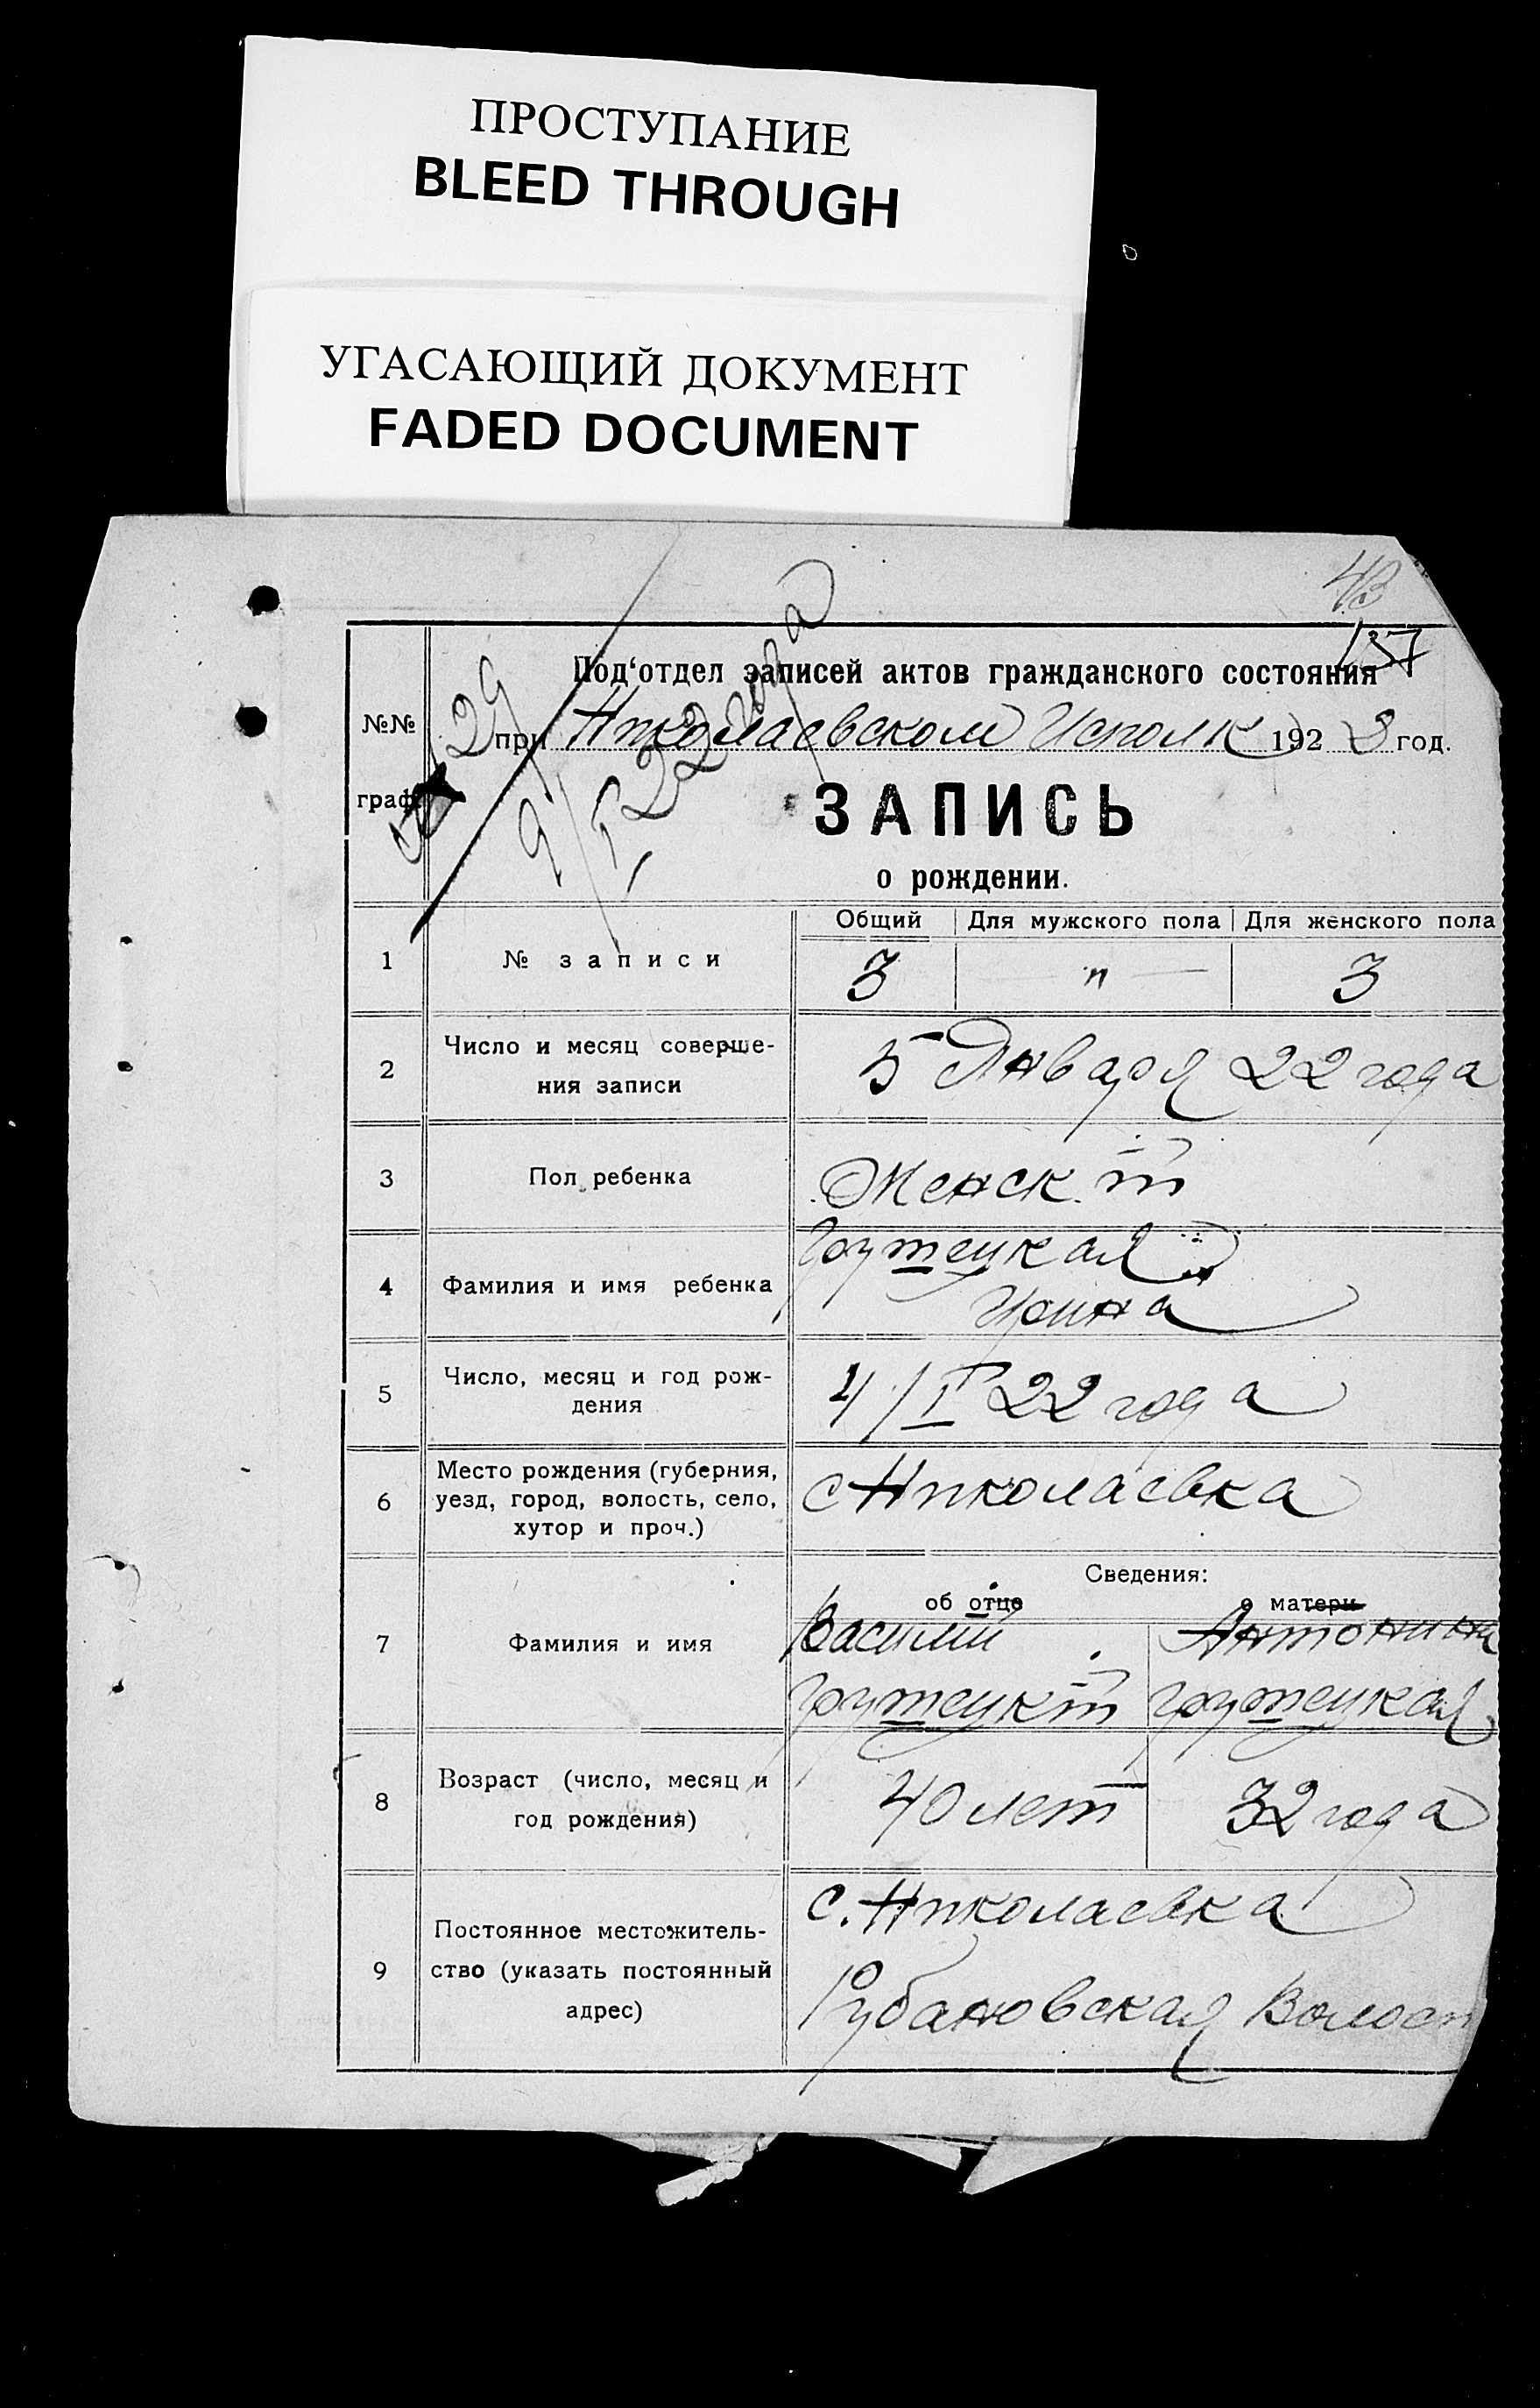 ПРОСТУПАНИЕ
BLEED THROUGH
УГАСАЮЩИЙ ДОКУМЕНТ
FADED DOCUMENT
43
137
№№
граф
Под‘отдел записей актов гражданского состояния
при Николаевском Исполк 192 год.
29
9/I 22 года
ЗАПИСЬ
о рождении.
Общий Для мужского пола Для женского пола
1 № записи 3 " 3
2 Число и месяц соверше-
ния записи
5 Января 22 года
3 Пол ребенка Женск.ій
4 Фамилия и имя ребенка
Грутецкая
Ирина
5 Число, месяц и год рож-
дения
4/I 22 года
6 Место рождения (губерния,
уезд, город, волость, село,
хутор и проч.)
с Николаевка
Сведения:
об отце о матери
7 Фамилия и имя
Василий Антонина
Грутецкій Грутецкая
8 Возраст (число, месяц и
год рождения)
40 лет 32 года
9 Постоянное местожитель-
ство (указать постоянный
адрес)
с. Николаевка
Рубановская Волост